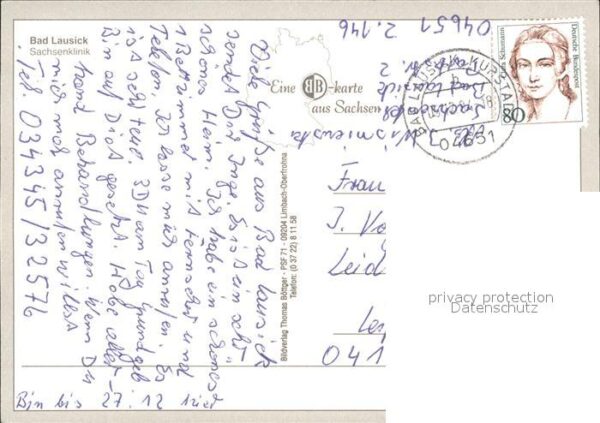 Bad Lausick
Sachsenklinik
Viele Grüße aus Bad Lausick
sendet Dir Inge. Es ist ein sehr
schönes Heim. Ich habe ein schönes
1 Bettzimmer mit Fernseher und
Telefon. Ich lasse mich anrufen. Es
ist sehr teuer 3 DM am Tag Grundgeb.
Bin auf Diät gesetzt. Habe aller-
hand Behandlungen. Wenn Du
mich mal anrufen willst
Tel. 034345/32576
Bin bis 27.12 hier
Eine BB-karte
aus Sachsen
Bildverlag Thomas Böttger - PSF 71 - 09204 Limbach-Oberfrohna
Telefon: (0 37 22) 8 11 58
04651
Z. 146
Bad Lausick
Sachsenkl.
BAD LAUSICK, KURSTADT
04651
Deutsche Bundespost
Clara Schumann
80
Frau
I. Vo
Leid
Lei
041
privacy protection
Datenschutz